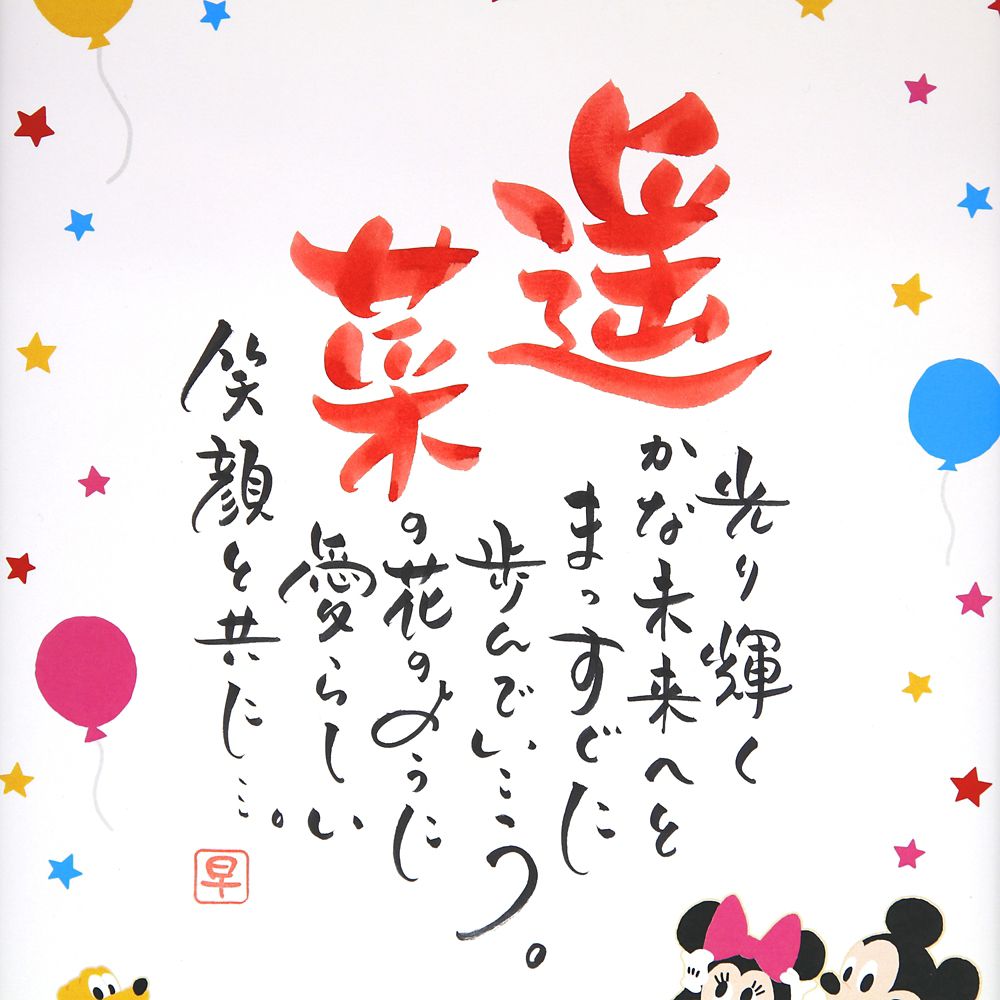 光り輝く
遥かな未来へと
まっすぐに
歩んでいこう。
菜の花のように
愛らしい
笑顔と共に…。
早